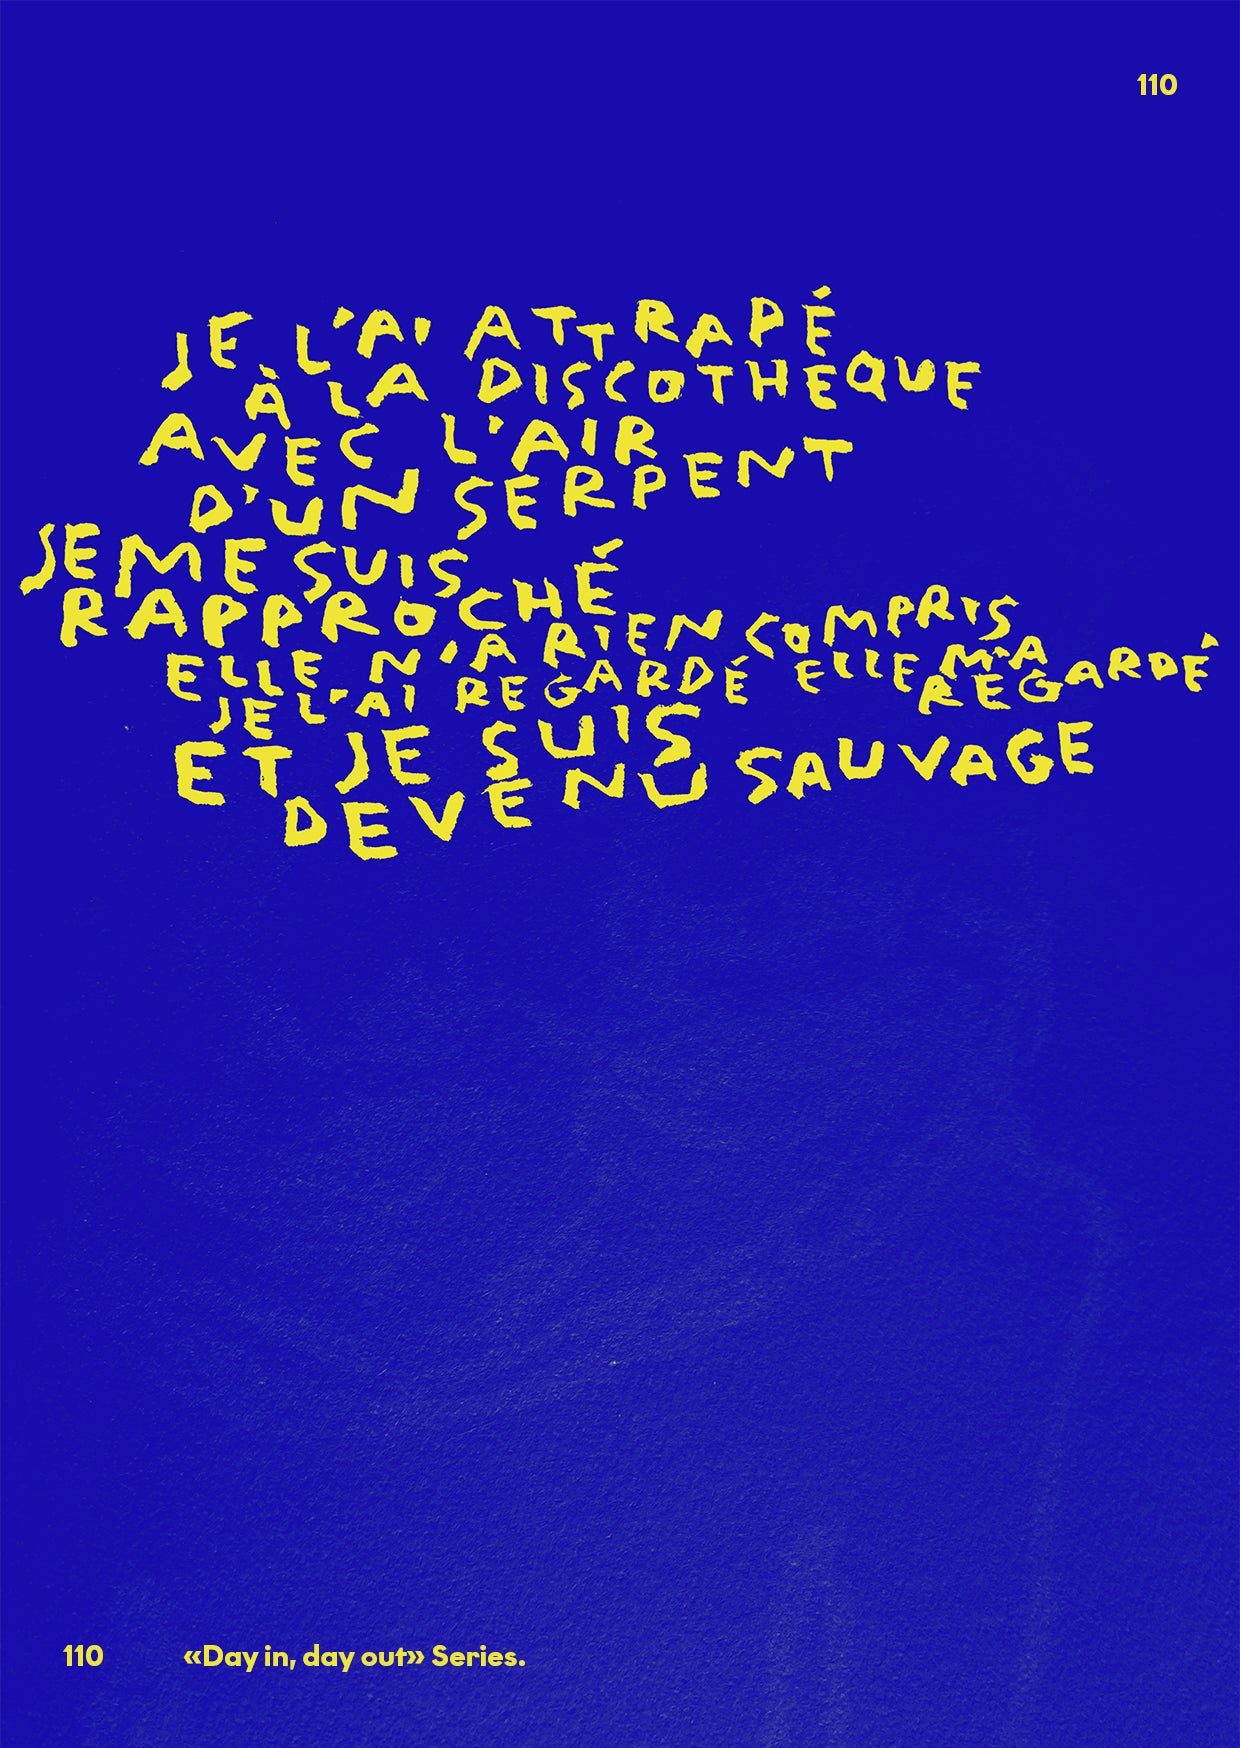 110
JE L'AI ATTRAPÉ
À LA DISCOTHEQUE
AVEC L'AIR
D'UN SERPENT
JE ME SUIS
RAPPROCHÉ
ELLE N'A RIEN COMPRIS
JE L'AI REGARDÉ ELLE M'A
REGARDÉ
ET JE SUIS
DEVENU SAUVAGE
110 «Day in, day out» Series.